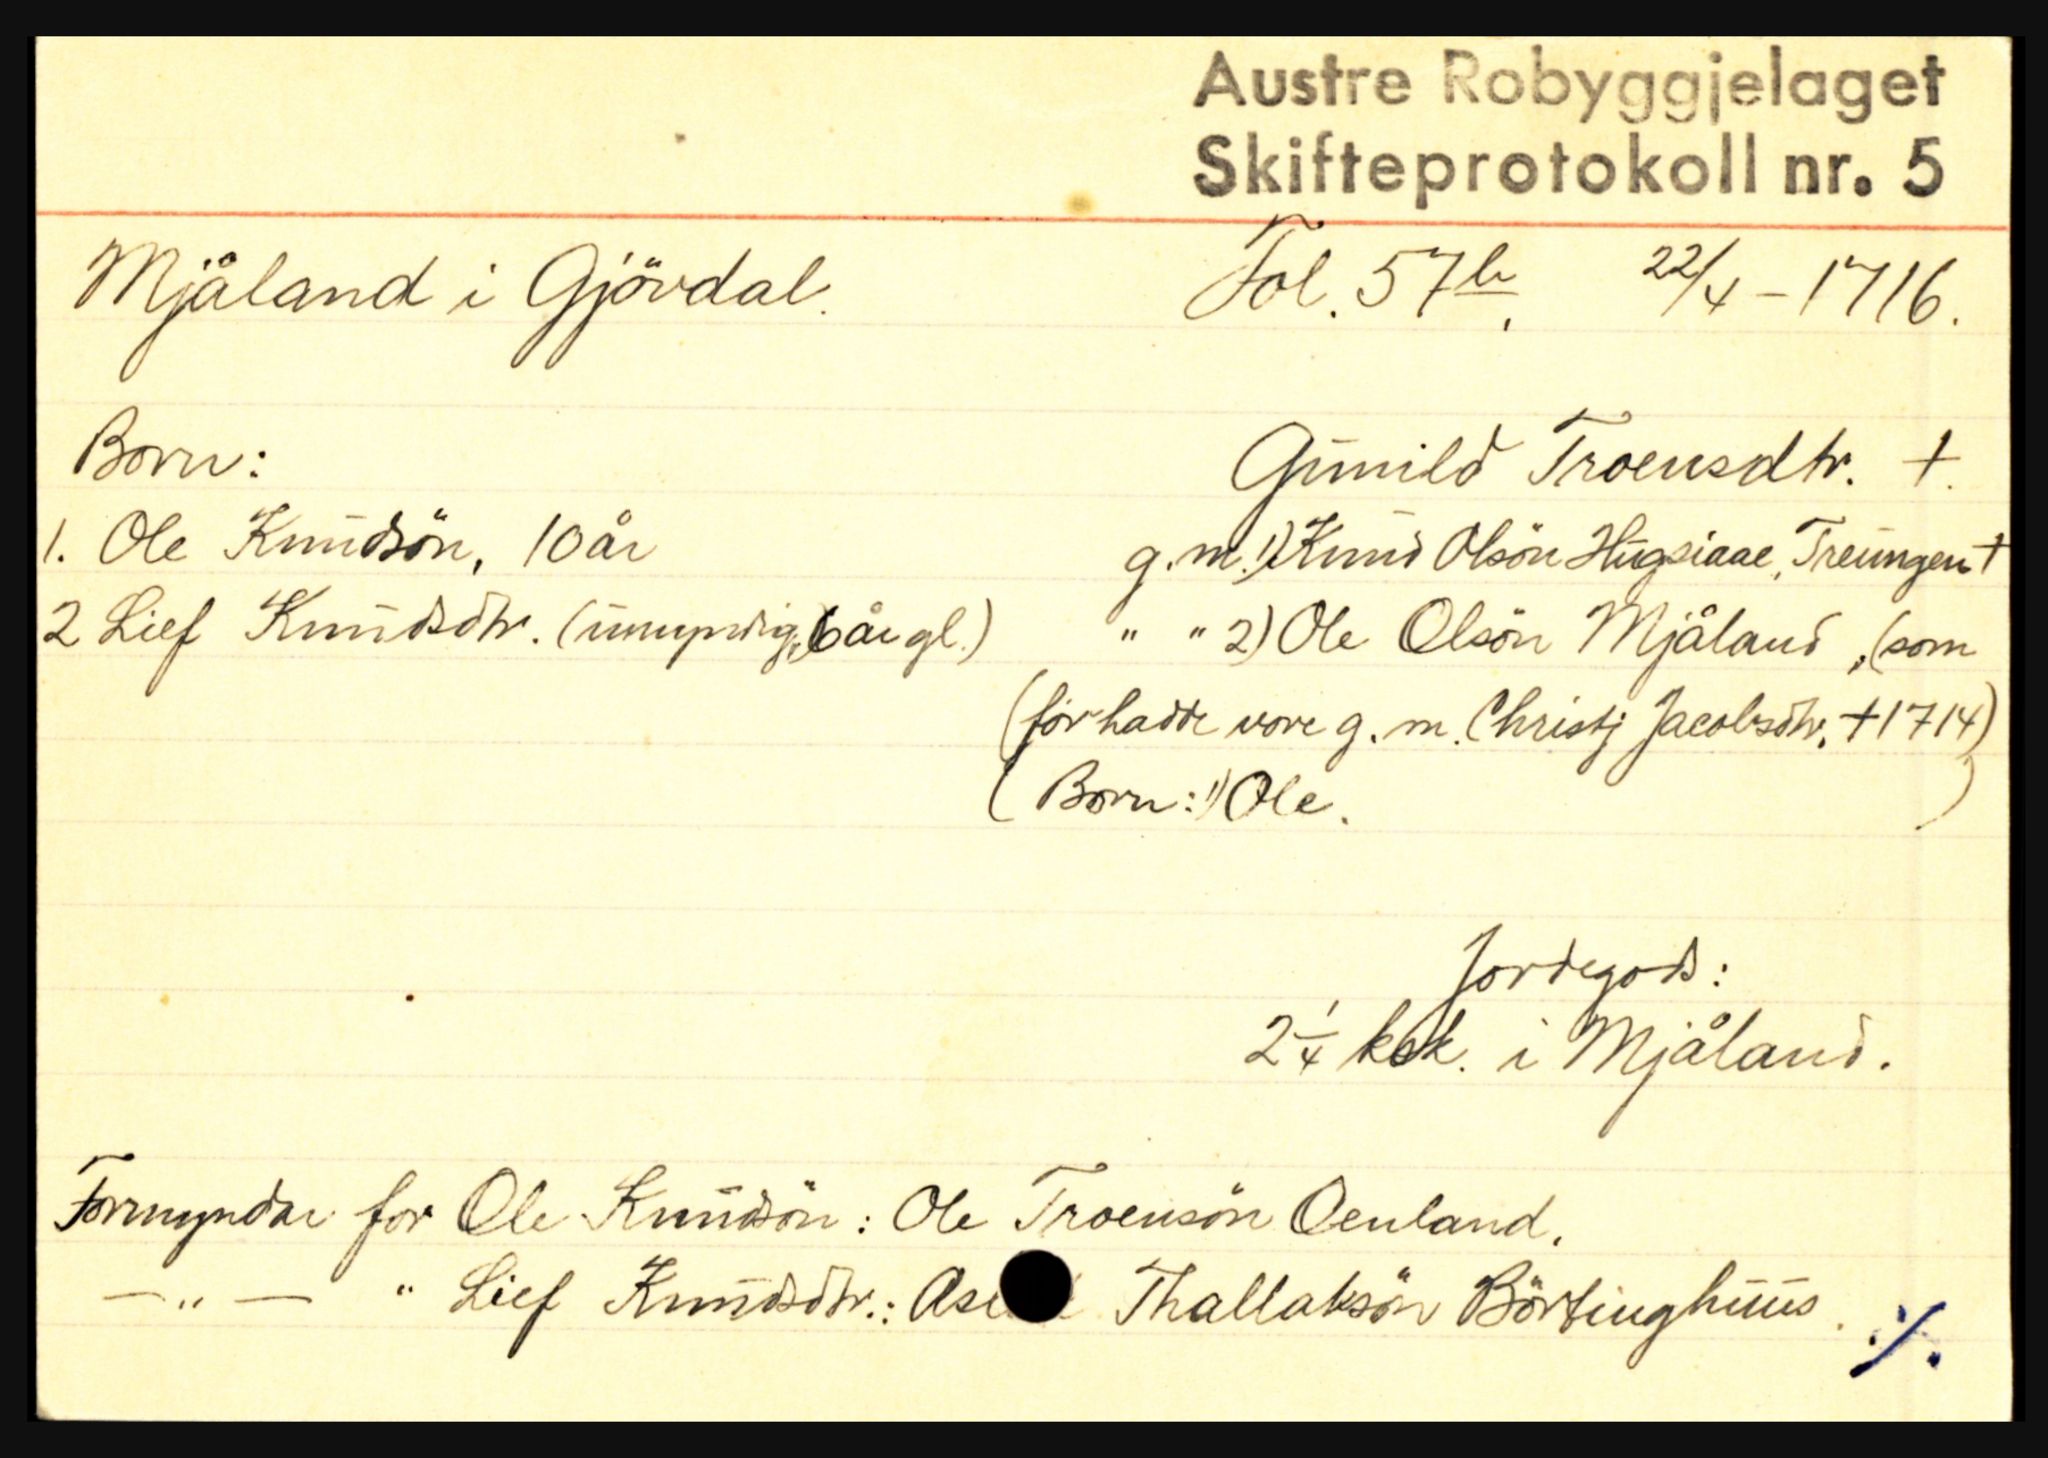 Austre Robyggjelaget
Skifteprotokoll nr. 5
Mjåland i Gjövdal.
Fol. 57b. 22/4 – 1716.
Born:
1. Ole Knudsön, 10 år
2 Lief Knudsdtr. (umyndig, 6 år gl.)
Gunild Troensdtr. †.
g.m. 1) Knud Olsön Hugsiaae, Treungen †
" " 2) Ole Olsön Mjåland, (som
(før hadde vore g. m. Christj Jacobsdtr, † 1714)
( Born: 1) Ole. )
Jordegods:
2 1/4 ksk. i Mjåland.
Formyndar for Ole Knudsön: Ole Troensön Oenland.
— " — " Lief Knudsdtr.: Thallaksön Börtinghuus. ./.